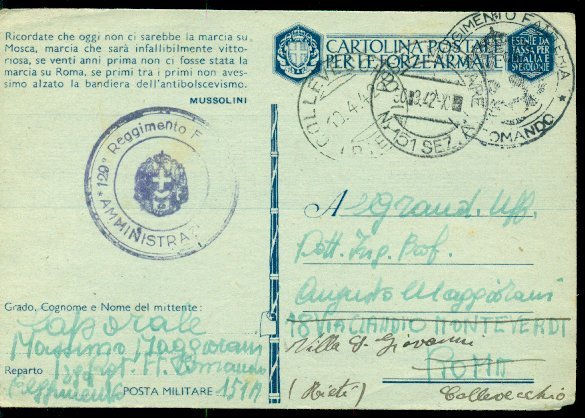 Ricordate che oggi non ci sarebbe la marcia su
Mosca, marcia che sarà infallibilmente vitto-
riosa, se venti anni prima non ci fosse stata la
marcia su Roma, se primi tra i primi non aves-
simo alzato la bandiera dell'antibolscevismo.
MUSSOLINI
CARTOLINA POSTALE
PER LE FORZE ARMATE
ESENTE DA
TASSA PER
L'ITALIA E
COLONIE
REGGIMENTO FANTERIA
COMANDO
N. 151 SEZ. A
129° Reggimento F
AMMINISTRAZ
Al Grand. Uff.
Dott. Ing. Prof.
Augusto Maggiorani
18 VIA CLAUDIO MONTEVERDI
Villa S. Giovanni
ROMA
(Rieti) Collevecchio
Grado, Cognome e Nome del mittente:
Caporale
Massimo Maggiorani
Reparto
Reggimento
POSTA MILITARE 151A